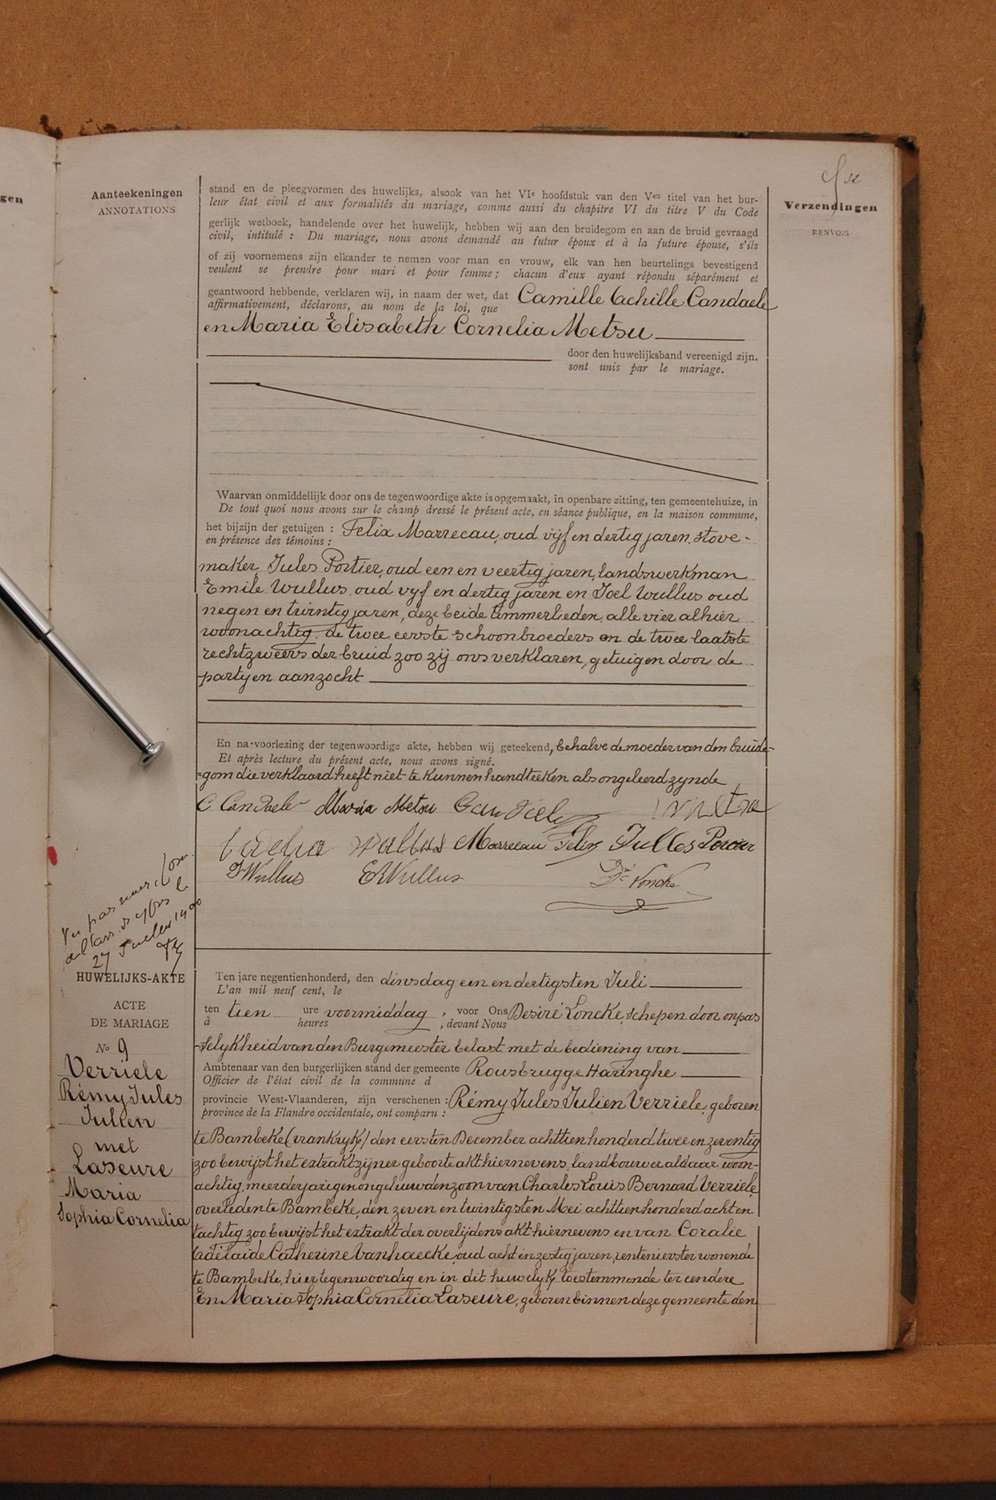 gen
Aanteekeningen
ANNOTATIONS
Verzendingen
RENVOIS
stand en de pleegvormen des huwelijks, alsook van het VIe hoofdstuk van den Ven titel van het bur-
leur état civil et aux formalités du mariage, comme aussi du chapitre VI du titre V du Code
gerlijk wetboek, handelende over het huwelijk, hebben wij aan den bruidegom en aan de bruid gevraagd
civil, intitulé : Du mariage, nous avons demandé au futur époux et à la future épouse, s'ils
of zij voornemens zijn elkander te nemen voor man en vrouw, elk van hen beurtelings bevestigend
veulent se prendre pour mari et pour femme ; chacun d'eux ayant répondu séparément et
geantwoord hebbende, verklaren wij, in naam der wet, dat Camille Achille Candaele
affirmativement, déclarons, au nom de la loi, que
en Maria Elisabeth Cornelia Metsu
door den huwelijksband vereenigd zijn.
sont unis par le mariage.
Waarvan onmiddelijk door ons de tegenwoordige akte is opgemaakt, in openbare zitting, ten gemeentehuize, in
De tout quoi nous avons sur le champ dressé le présent acte, en séance publique, en la maison commune,
het bijzijn der getuigen : Felix Marrecau, oud vijf en dertig jaren, stove-
en présence des témoins :
maker, Jules Portier, oud een en veertig jaren, landswerkman
Emile Wullus, oud vyf en dertig jaren en Joel Wullus oud
negen en twintig jaren, deze beide timmerlieden, alle vier alhier
woonachtig, de twee eerste schoonbroeders en de twee laatste
rechtzweers der bruid zoo zij ons verklaren, getuigen door de
partyen aanzocht
En na voorlezing der tegenwoordige akte, hebben wij geteekend, behalve de moeder van den bruide-
Et après lecture du présent acte, nous avons signé.
gom die verklaard heeft niet te kunnen handteeken als ongeleerd zynde
C Candaele Maria Metsu
Wullus Marrecau Felix Jullos Porcier
J Wullus E Wullus Dé Loncke
27 Juillet 1900
HUWELIJKS-AKTE
ACTE
DE MARIAGE
No 9
Verriele
Rémy Jules
Julien
met
Laseure
Maria
Sophia Cornelia
Ten jare negentienhonderd, den dinsdag een en dertigsten Juli
L'an mil neuf cent, le
ten tien ure voormiddag, voor Ons Desiré Loncke, schepen door onpas
à heures , devant Nous
selykheid van den Burgemeester belast met de bediening van
Ambtenaar van den burgerlijken stand der gemeente Rousbrugge Haringhe
Officier de l'état civil de la commune d
provincie West-Vlaanderen, zijn verschenen : Rémy Jules Julien Verriele, geboren
province de la Flandre occidentale, ont comparu :
te Bambeke (Frankryk) den eersten December achttien honderd twee en zeventig
zoo bewijst het extrakt zijner geboorte akt hiernevens, landbouwer aldaar woon-
achtig, meerderjarigen ongehuwden zoon van Charles Louis Bernard Verriele,
overleden te Bambeke, den zeven en twintigsten Mei achttien honderd acht en
tachtig zoo bewijst het extrakt der overlijdens akt hiernevens en van Coralie
Adélaïde Catherine Vanhaecke, oud acht en zestig jaren, rentenierster wonende
te Bambeke, hier tegenwoordig en in dit huwelyk toestemmende ter eendere
En Maria Sophia Cornelia Laseure, geboren binnen deze gemeente den